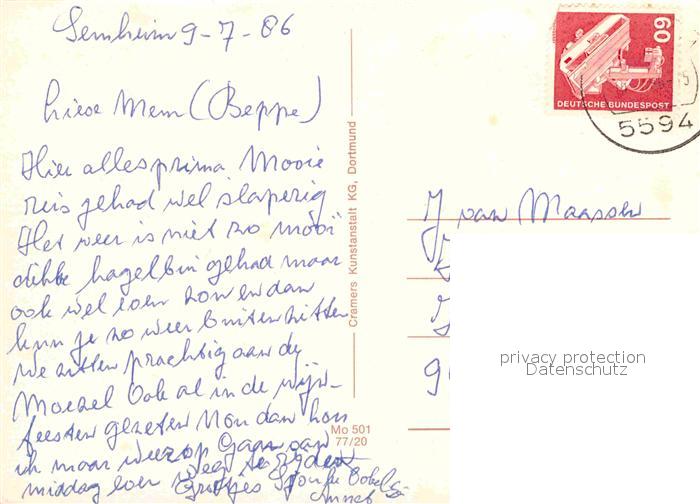 Senheim 9-7-86
Lieve Mem (Beppe)
Hier alles prima. Mooie
reis gehad wel slaperig
Het weer is niet zo mooi
dikke hagelbui gehad maar
ook wel zon en dan
kun je zo weer buiten zitten
we zitten prachtig aan de
Moezel Ook al in de wijn-
feesten gezeten Nou dan hou
ik maar weer op Gaan van
middag weer
Groetjes
Cramers Kunstanstalt KG, Dortmund
Mo 501
77/20
60
DEUTSCHE BUNDESPOST
5594
J van Maassen
9
privacy protection
Datenschutz